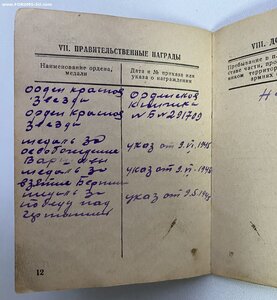 www.FORUMSS-su.com
VII. ПРАВИТЕЛЬСТВЕННЫЕ НАГРАДЫ
Наименование ордена, медали
Дата и № приказа или указа о награждении
орден красной
звезды
орденская
книжка
орден красной
звезды
№ Б № 291709
медаль за
освобождение
Варшавы
указ от 9.VI.1945
медаль за
взятие Берлина
указ от 9.VI.1945
медаль за
победу над
германией
указ от 9.5.1945
12
VIII.
Пребывание в